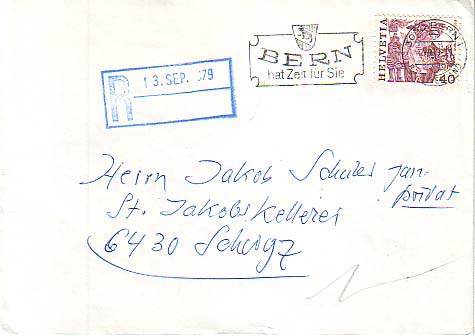 BERN
hat Zeit für Sie
HELVETIA
40
R
13. SEP. 79
Herrn Jakob Schuler jun.
privat
St. Jakobskellerei
6430 Schwyz